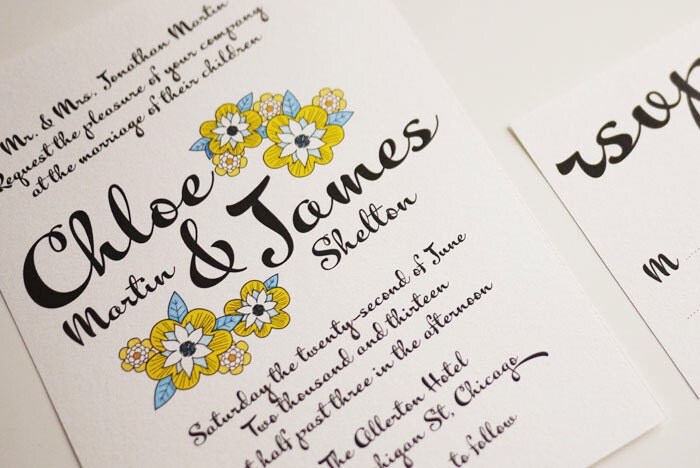 Mr. & Mrs. Jonathan Martin
Request the pleasure of your company
at the marriage of their children
Chloe
Martin
& James
Shelton
Saturday the twenty-second of June
Two thousand and thirteen
half past three in the afternoon
The Allerton Hotel
St, Chicago
to follow
rsvp
M